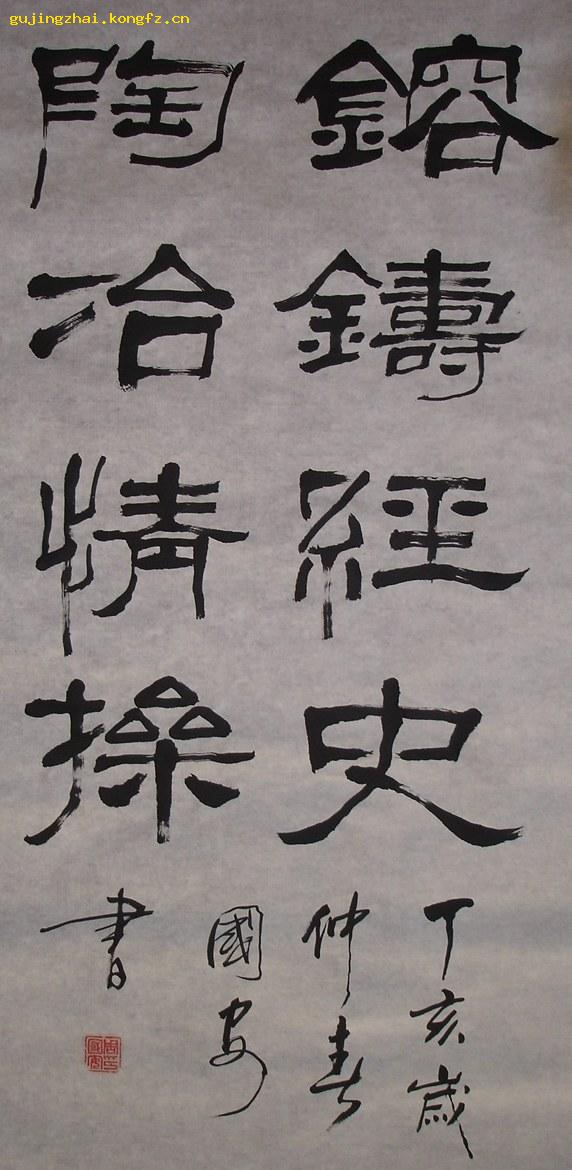 gujingzhai.kongfz.cn
鎔鑄經史
陶冶情操
丁亥歲
仲春
國安
書